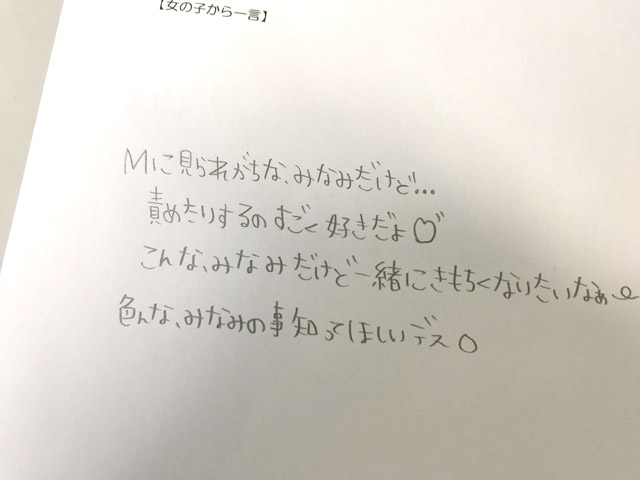 【女の子から一言】
Mに見られがちな、みなみだけど…
責めたりするのすごく好きだよ♡
こんな、みなみだけど一緒にきもちくなりたいなぁ
色んな、みなみの事知ってほしいデス〇